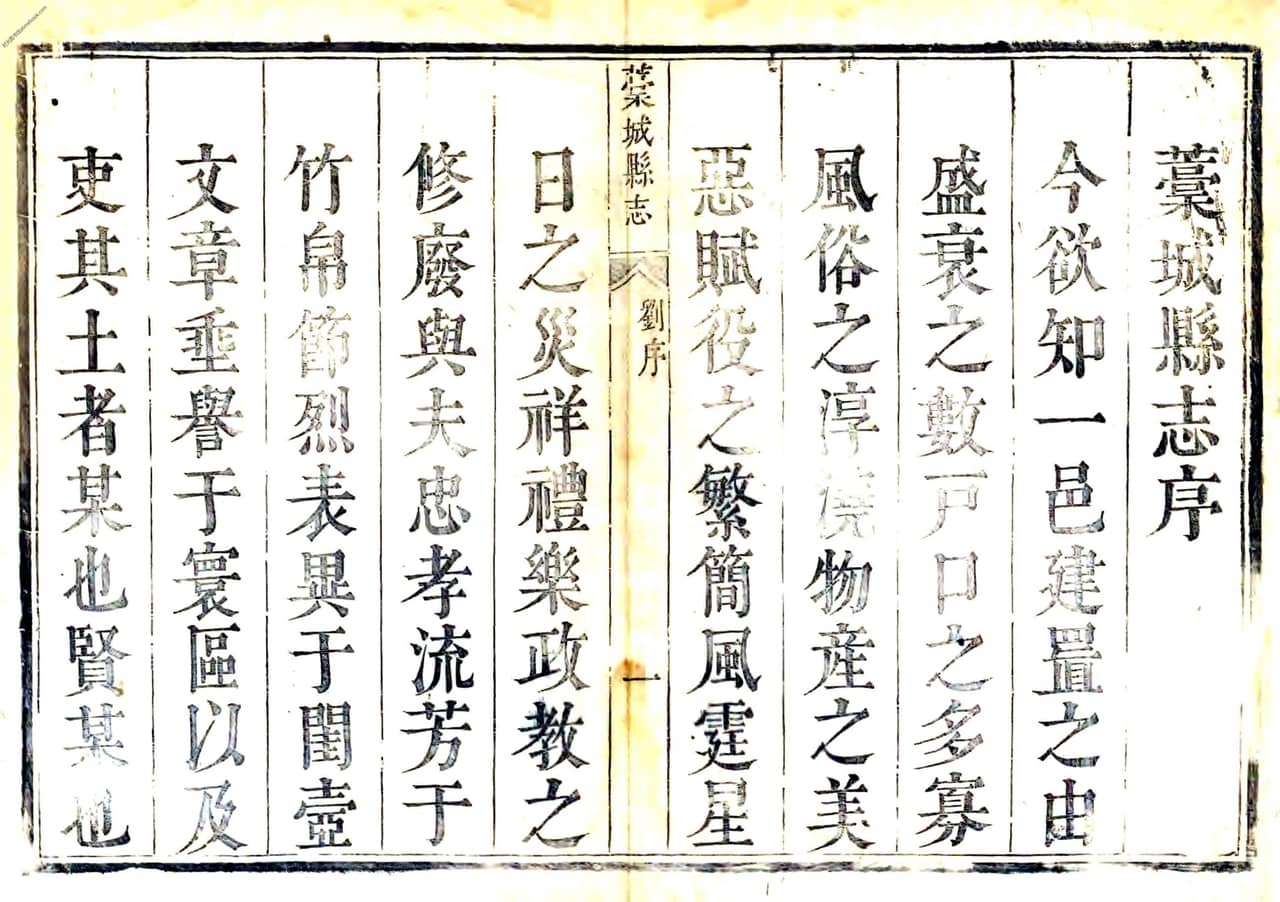 藳城縣志序
今欲知一邑建置之由
盛衰之數戸口之多寡
風俗之淳澆物産之美
惡賦役之繁簡風霆星
藁城縣志
劉序
一
日之災祥禮樂政教之
修廢與夫忠孝流芳于
竹帛節烈表異于閨壼
文章垂譽于寰區以及
吏其土者某也賢某也